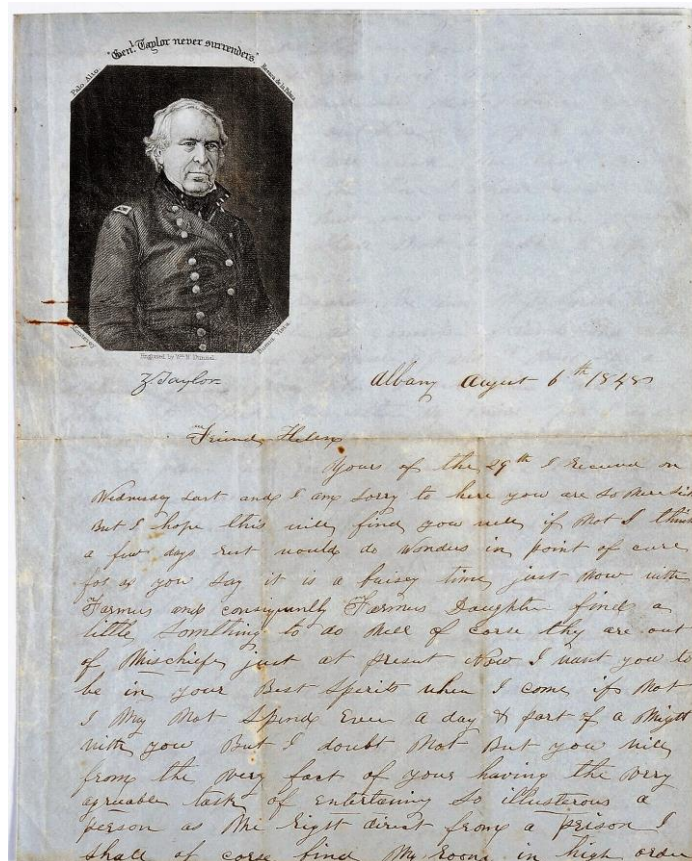 "Gen.l Taylor never surrenders."
Palo Alto
Resaca de la Palma
Monterey
Buena Vista
Engraved by Wm. H. Dunnel.
Z Taylor
Albany August 6th 1848
Friend Helen
Yours of the 29th I received on
Wednesday last and I am sorry to here you are so
But I hope this will find you well if Not I think
a few days rest would do Wonders in point of cure
for as you say it is a buisy time just Now with
Farmers and consiquently Farmers Daughters find a
little Something to do Well of corse they are out
of Mischief just at present Now I want you to
be in your Best Spirits when I come if Not
I May Not Spend Even a day & part of a Night
with you But I doubt Not But you will
from the very fact of your having the very
agreeable task of entertaining so illusterous a
person as Me right direct from a prison I
shall of corse find My Room in high order